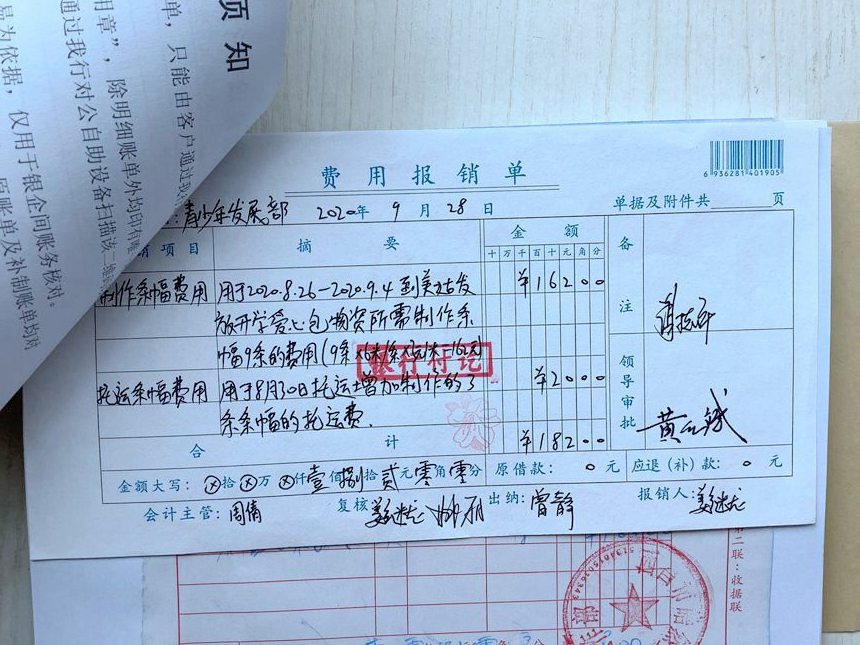 须知
单，只能由客户通过我
用章”，除明细账单外均印有
通过我行对公自助设备扫描该二维
易为依据，仅用于银企间账务核对。
原账单及补制账单均对
费用报销单
6 936281 401905
青少年发展部 2020年 9月 28日 单据及附件共 页
销项目 摘要 金额 备注
十万千百十元角分
制作条幅费用 用于2020.8.26-2020.9.4到美姑发 ¥16200
放开学爱心包物资所需制作条
幅9条的费用(9条×6米/条×3元/米=162元)
银行付讫
托运条幅费用 用于8月30日托运增加制作的3 ¥2000
条条幅的托运费.
领导审批
合计 ¥18200
金额大写：ⓧ拾ⓧ万ⓧ仟壹佰捌拾贰元零角零分 原借款：0元 应退（补）款：0元
会计主管：周倩 复核 出纳：曾静 报销人：
第二联：收据联
5134015036343